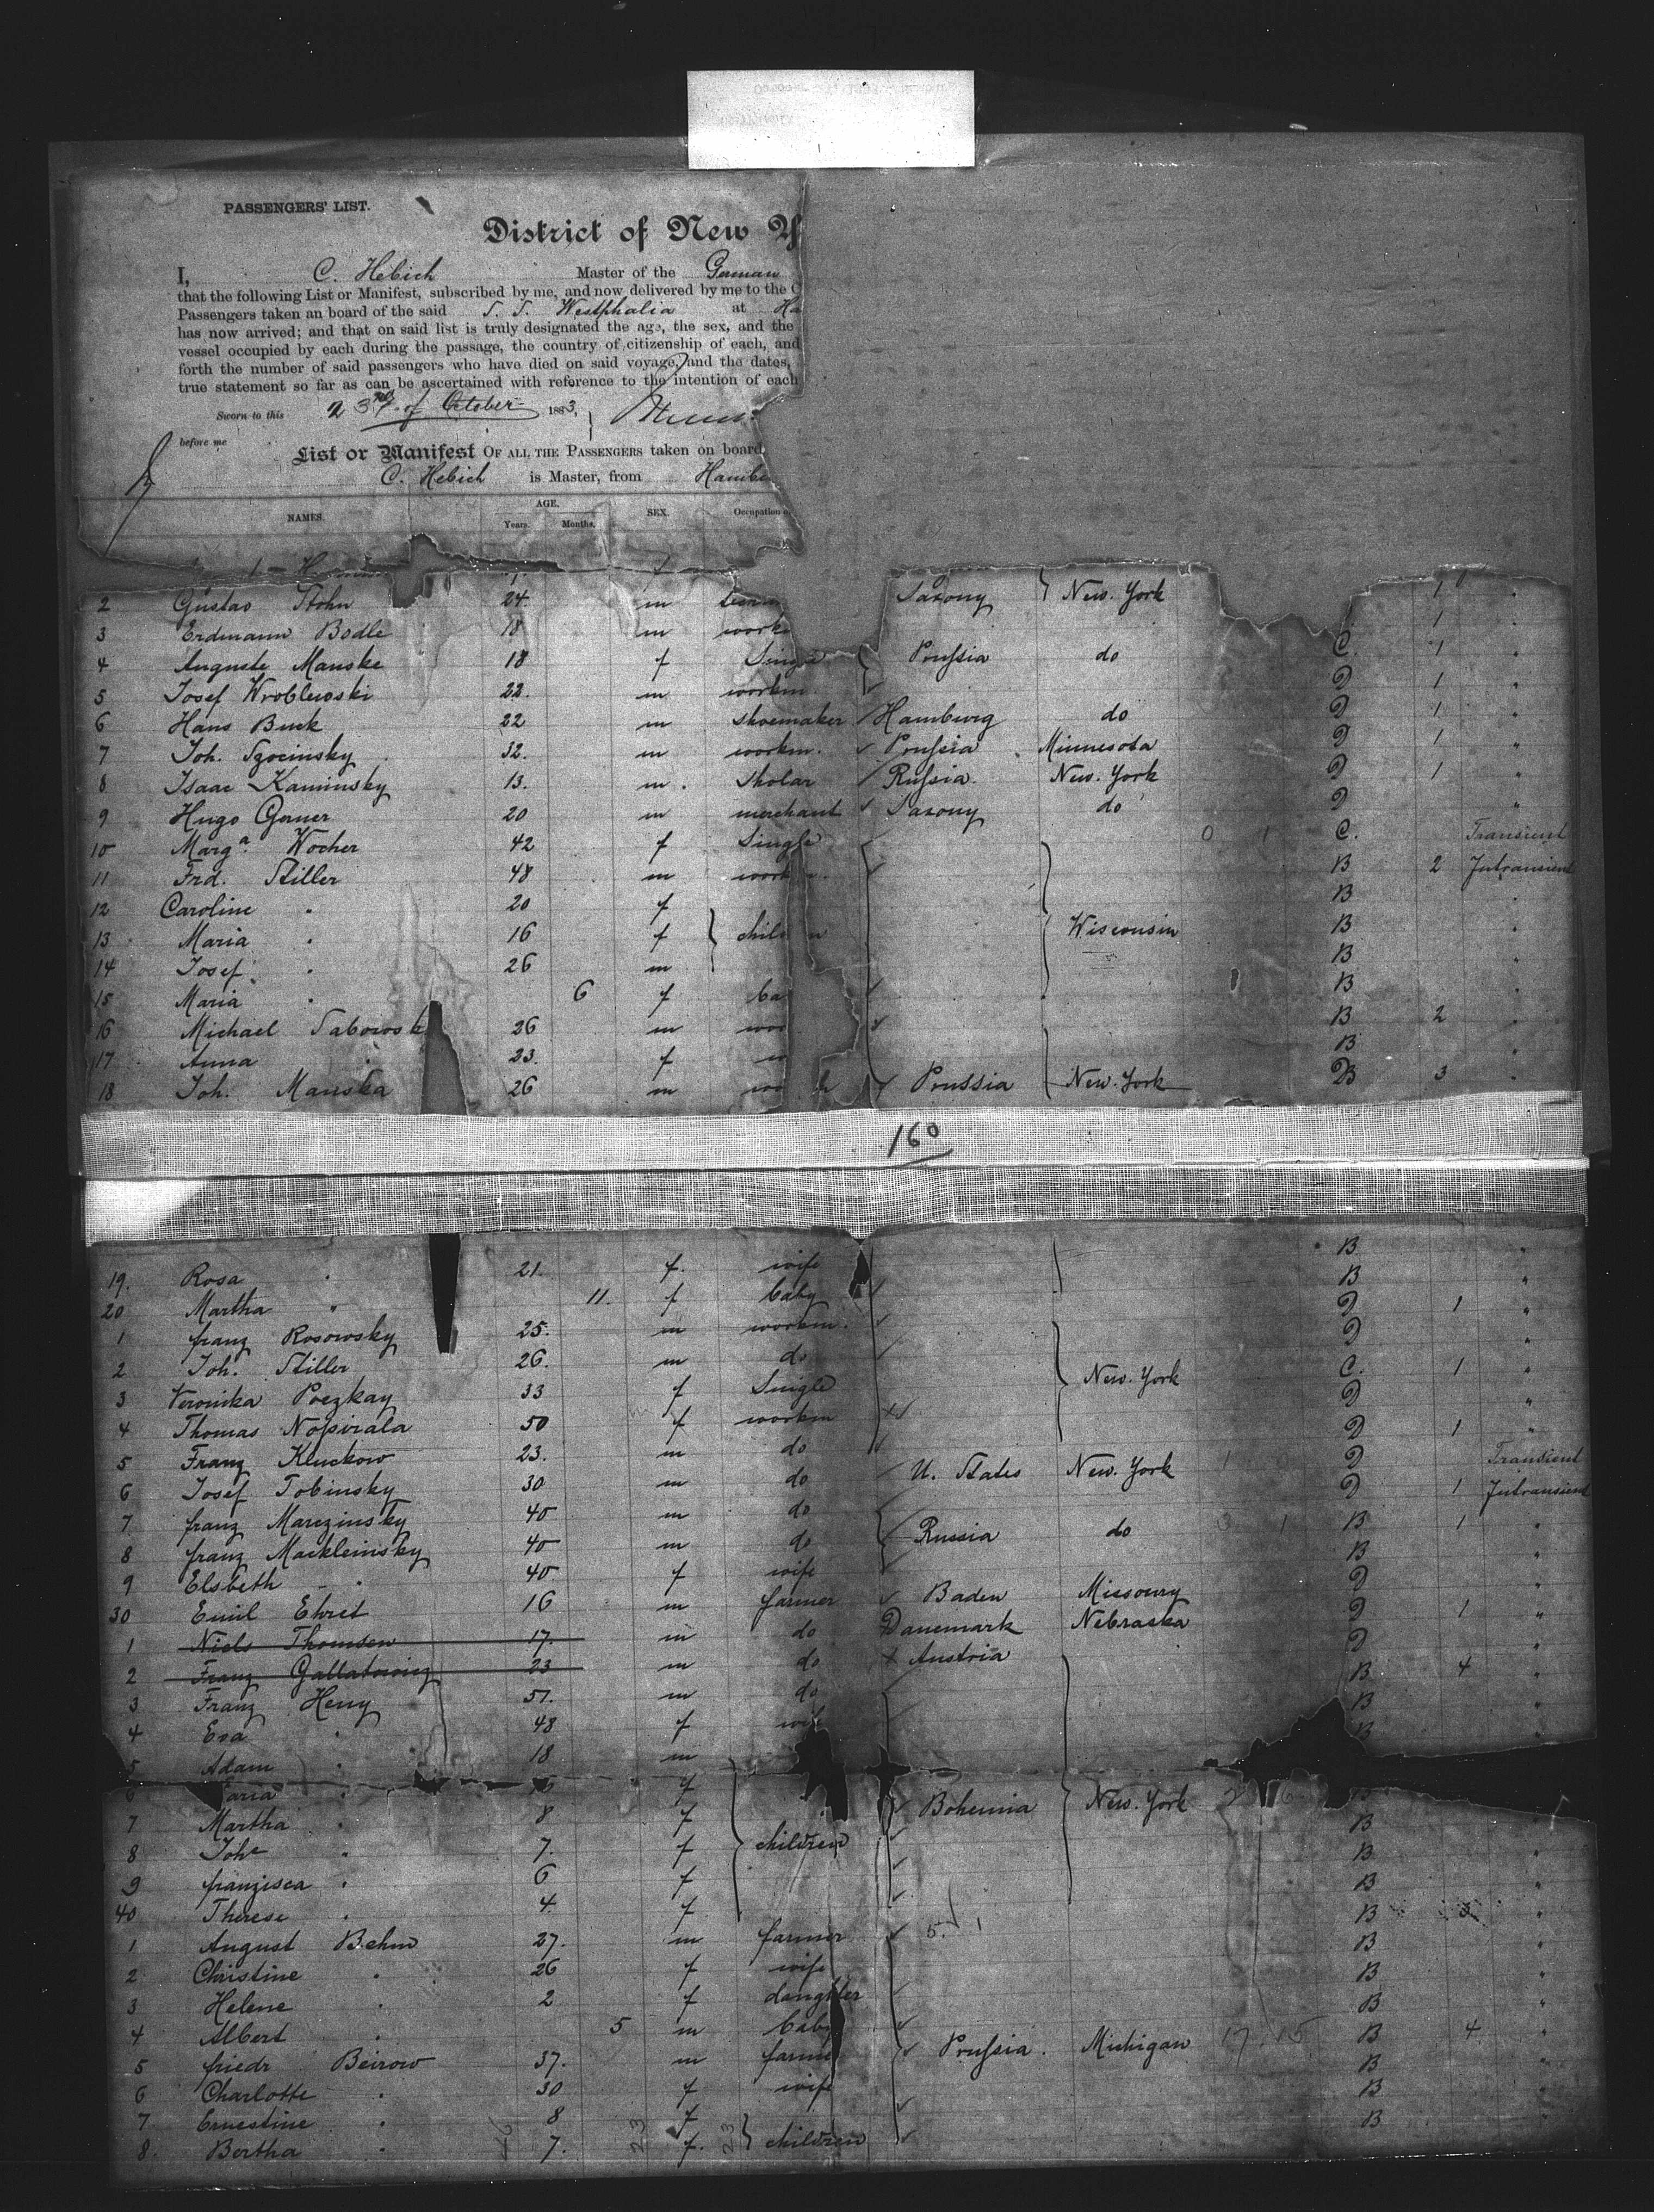 PASSENGERS' LIST.
District of New Y
I, C. Hebich Master of the German
that the following List or Manifest, subscribed by me, and now delivered by me to the C
Passengers taken an board of the said S. S. Westphalia at Ha
has now arrived; and that on said list is truly designated the age, the sex, and the
vessel occupied by each during the passage, the country of citizenship of each, and
forth the number of said passengers who have died on said voyage, and the dates,
true statement so far as can be ascertained with reference to the intention of each
Sworn to this 23rd of October 1883,
before me
List or Manifest OF ALL THE PASSENGERS taken on board
C. Hebich is Master, from Hambu
NAMES. AGE. Years. Months. SEX. Occupation
2 Gustav Stohn 24. m Saxony New. York 1 "
3 Erdmann Bodle 18 m work 1
4 Auguste Manske 18 f Single Prussia do C. 1 "
5 Josef Wroblewski 22. m workm. D 1 "
6 Hans Buck 22 m shoemaker Hamburg do D 1 "
7 Joh. Szocinsky 32. m workm. Prussia Minnesota D 1 "
8 Isaac Kaminsky 13. m. skolar Russia. New. York D 1 "
9 Hugo Gerner 20 m merchant Saxony do D "
10 Marga. Wocher 42 f Single 0 1 C. Transient
11 Frd. Stiller 48 m work B 2 Intransient
12 Caroline " 20 f B "
13 Maria " 16 f child n Wisconsin B "
14 Josef " 26 m B "
15 Maria " 6 f ba B "
16 Michael Sabowsk 26 m wor B 2 "
17 Anna " 23. f B "
18 Joh. Manska 26 m Prussia New. York B 3 "
160
19. Rosa " 21. f. wife B "
20 Martha " 11. f baby B "
1 franz Rosowsky 25. m workm. D 1 "
2 Joh. Stiller 26. m do D "
3 Veronika Poezkay 33 f Single New. York C. 1 "
4 Thomas Nossirala 50 f workm D "
5 Franz Kluckow 23. m do D 1 "
6 Josef Tobinsky 30 m do U. States New. York 1 D Transient
7 franz Marezinsky 40 m do D 1 Intransient
8 franz Mackleinsky 40 m do Russia do 3 1 B 1 "
9 Elsbeth " 40 f wife B "
30 Emil Ehret 16 m farmer Baden Missoury D "
1 Niels Thomsen 17. m do Danemark Nebraska D 1 "
2 Franz Gallatowicz 23 m do Austria D "
3 Franz Henry 51. m do B 4 "
4 Eva " 48 f wife B "
5 Adam " 18 m B "
6 aria " f Bohemia New. York 2 6
7 Martha " 8 f B
8 Joh " 7. f children B "
9 franzisca " 6 f B "
40 Therese " 4. f B "
1 August Behm 27. m farmer 5. B 3 "
2 Christine " 26 f wife B "
3 Helene " 2 f daughter B "
4 Albert " 5 m baby B "
5 friedr Beirow 37. m farmer Prussia. Michigan 17. 15 B 4 "
6 Charlotte " 30 f wife B "
7 Ernestine " 8 f B
8. Bertha " 7. f. children B
46 23 23